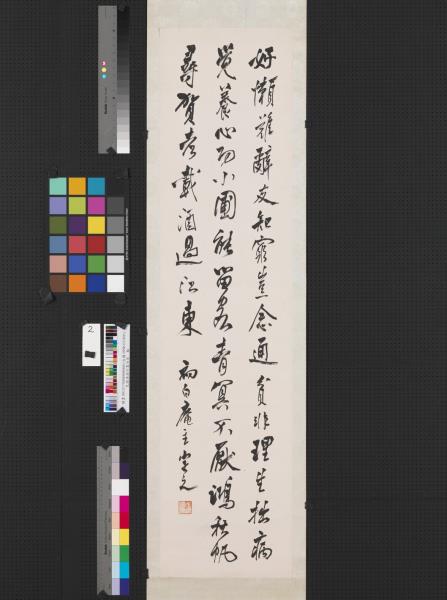 好懶難辭友知窮豈念通貧非理生拙病
覺養心功小圃能留客青冥不厭鴻秋帆
尋賀老載酒過江東
初白庵主
2